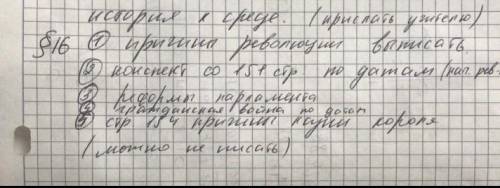 история к среде. (прислать учителю)
§16 ① причины революции выписать
② конспект со 151 стр по датам (нач. рев.
③ Реформы парламента
④ гражданская война по датам
⑤ стр 154 причины казни короля
(можно не писать)